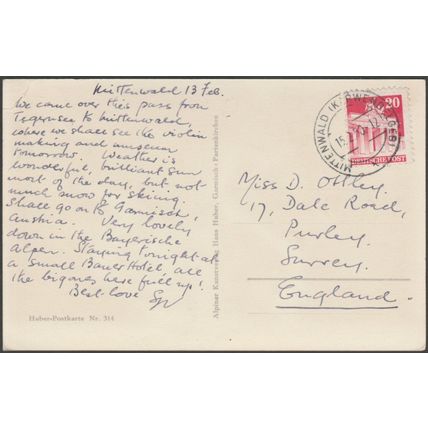 Mittenwald 13 Feb.
We came over this pass from
Tegernsee to Mittenwald,
where we shall see the violin
making and museum
tomorrow. Weather is
wonderful, brilliant sun
most of the day, but not
much snow for skiing.
Shall go on to Garmisch,
Austria. Very lovely
down in the Bayerische
Alpen. Staying tonight at
a small Bauer Hotel, all
the big ones have full up!
Best love
Huber-Postkarte Nr. 314
Alpiner Kunstverlag Hans Huber, Garmisch-Partenkirchen
MITTENWALD (KARWENDELGEB)
20
DEUTSCHE POST
Miss D. Ottley,
17, Dale Road,
Purley.
Surrey.
England.